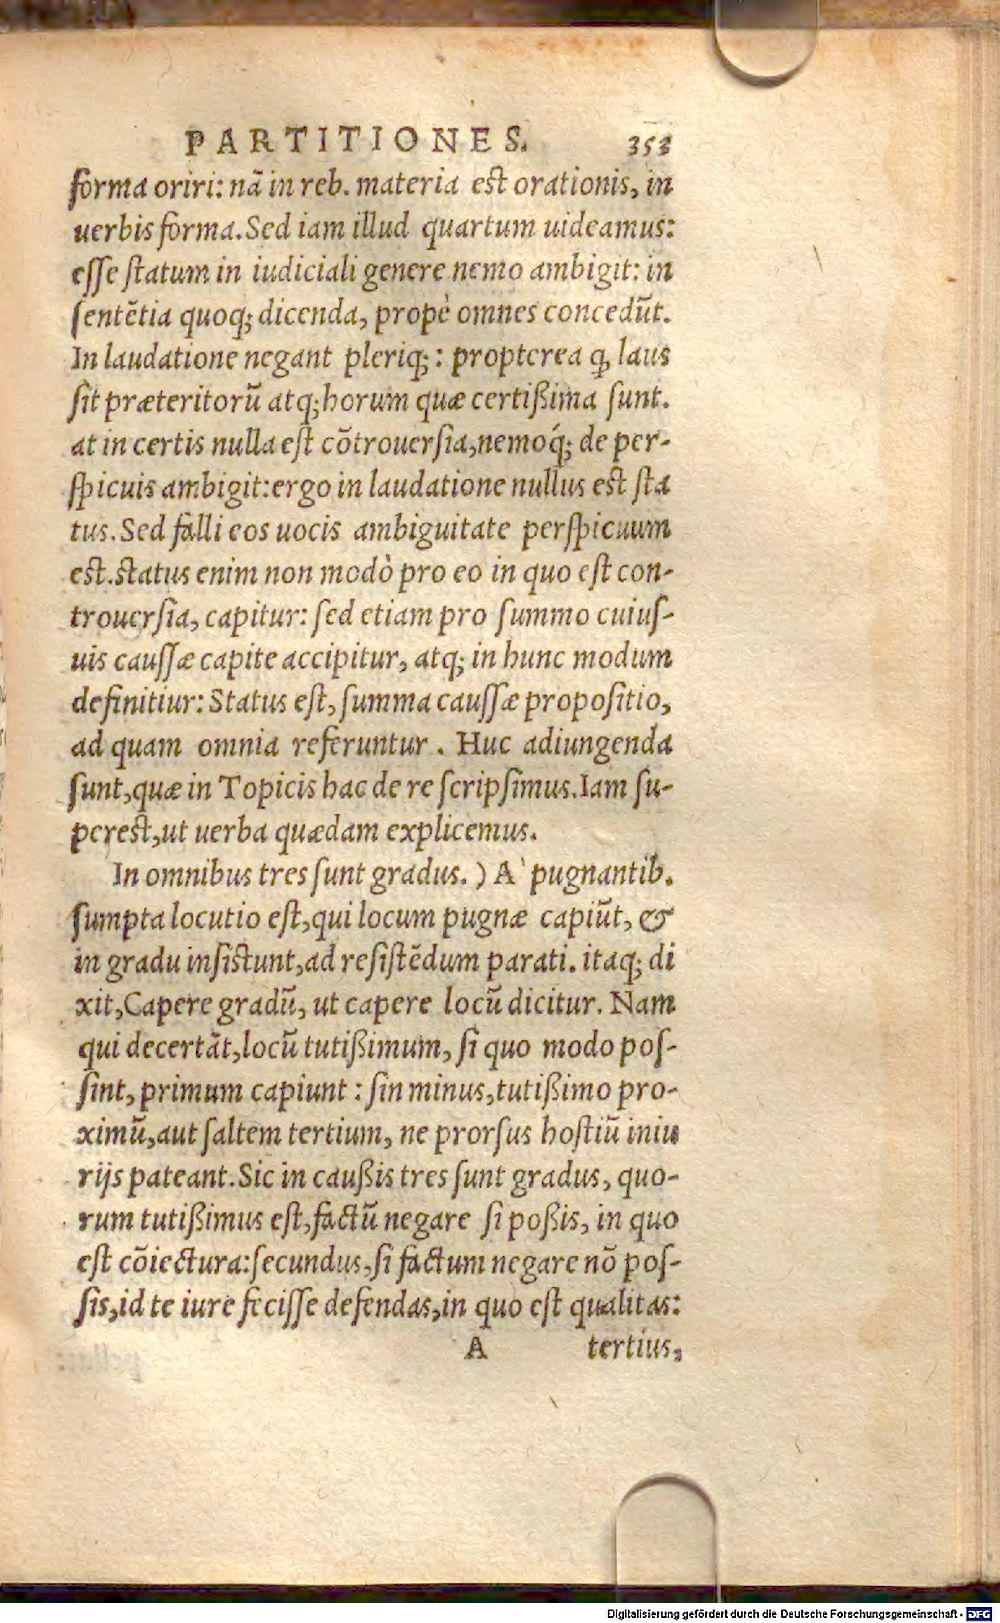 PARTITIONES. 353
forma oriri: nã in reb. materia est orationis, in
uerbis forma. Sed iam illud quartum uideamus:
esse statum in iudiciali genere nemo ambigit: in
sentẽtia quoq; dicenda, propè omnes concedũt.
In laudatione negant pleriq;: propterea ꝙ laus
sit præteritorũ atq; horum quæ certißima sunt.
at in certis nulla est cõtrouersia, nemoq́; de per-
spicuis ambigit: ergo in laudatione nullus est sta
tus. Sed falli eos uocis ambiguitate perspicuum
est. status enim non modò pro eo in quo est con-
trouersia, capitur: sed etiam pro summo cuius-
uis caussæ capite accipitur, atq; in hunc modum
definitiur: Status est, summa caussæ propositio,
ad quam omnia referuntur. Huc adiungenda
sunt, quæ in Topicis hac de re scripsimus. Iam su-
perest, ut uerba quædam explicemus.
In omnibus tres sunt gradus. ) A` pugnantib.
sumpta locutio est, qui locum pugnæ capiũt, &
in gradu insistunt, ad resistẽdum parati. itaq; di
xit, Capere gradũ, ut capere locũ dicitur. Nam
qui decertãt, locũ tutißimum, si quo modo pos-
sint, primum capiunt: sin minus, tutißimo pro-
ximũ, aut saltem tertium, ne prorsus hostiũ iniu
rijs pateant. Sic in caußis tres sunt gradus, quo-
rum tutißimus est, factũ negare si poßis, in quo
est cõiectura: secundus, si factum negare nõ pos-
sis, id te iure fecisse defendas, in quo est qualitas:
A tertius,
Digitalisierung gefördert durch die Deutsche Forschungsgemeinschaft - DFG